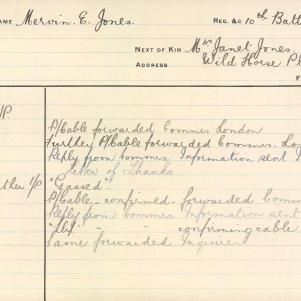 NAME Mervin E. Jones. REG. &C 10th Batt
NEXT OF KIN Mrs Janet Jones,
ADDRESS Wild Horse P
F
/P. P/Cable forwarded Commrs London
Further P/Cable forwarded Commrs. Lon
Reply from Commrs. Information sent
of Thanks.
ther I/P "Gassed"
P/Cable - confirmed - forwarded Comm
Reply from Commrs Information sent
confirming cable
Same forwarded Inquirer